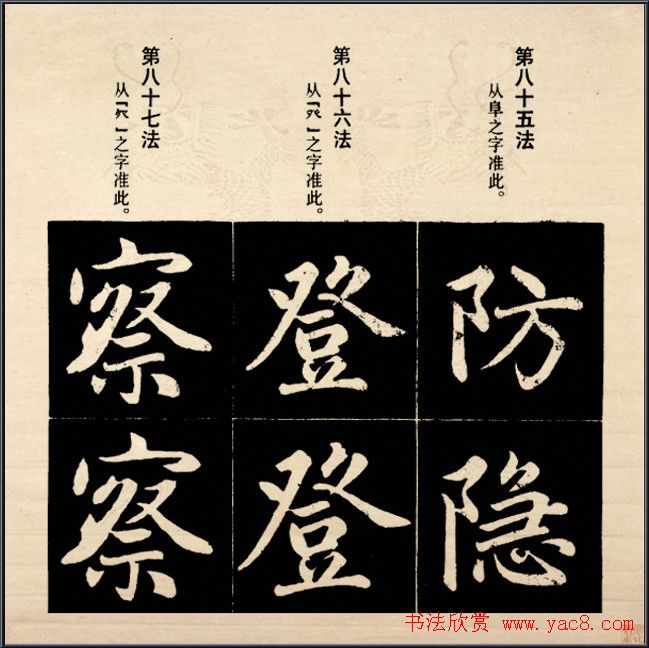 第八十五法
从阜之字准此。
第八十六法
从「癶」之字准此。
第八十七法
从「癶」之字准此。
防
隐
登
登
察
察
书法欣赏 www.yac8.com